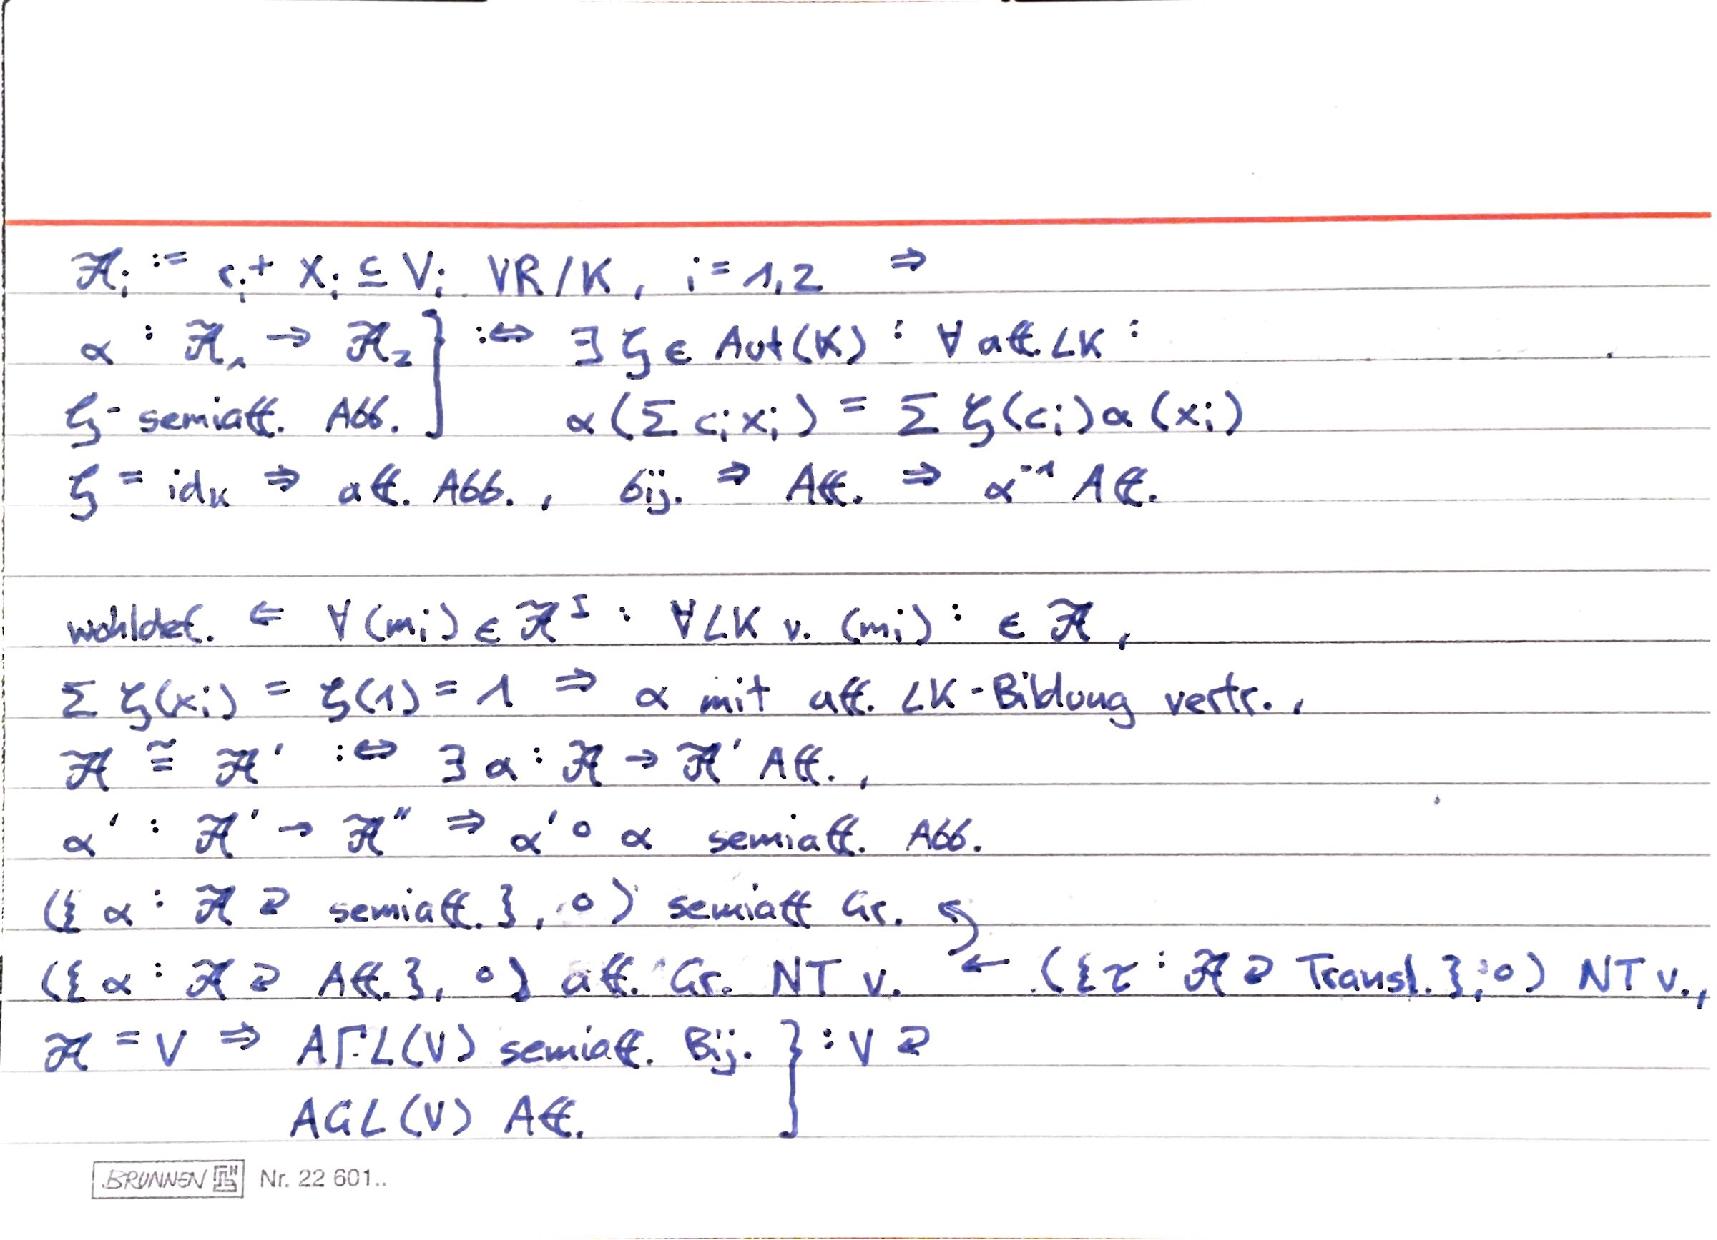 𝓐ᵢ := rᵢ + Xᵢ ⊆ Vᵢ VR/K, i = 1,2 ⇒
α : 𝓐₁ → 𝓐₂ } :⇔ ∃ ζ ∈ Aut(K) : ∀ aff. LK :
ζ-semiaff. Abb. α(Σ cᵢxᵢ) = Σ ζ(cᵢ)α(xᵢ)
ζ = id_K ⇒ aff. Abb., bij. ⇒ Aff. ⇒ α⁻¹ Aff.
wohldef. ⇐ ∀(mᵢ) ∈ 𝓐ᴵ : ∀LK v. (mᵢ) : ∈ 𝓐,
Σ ζ(xᵢ) = ζ(1) = 1 ⇒ α mit aff. LK-Bildung vertr.,
𝓐 ≅ 𝓐' :⇔ ∃ α : 𝓐 → 𝓐' Aff.,
α' : 𝓐' → 𝓐'' ⇒ α' ∘ α semiaff. Abb.
({ α : 𝓐 ⮌ semiaff. }, ∘) semiaff Gr. ↰
({ α : 𝓐 ⮌ Aff. }, ∘) aff. Gr. NT v. ← ({ τ : 𝓐 ⮌ Transl. }, ∘) NT v.,
𝓐 = V ⇒ AΓL(V) semiaff. Bij. } : V ⮌
AGL(V) Aff.
BRUNNEN Nr. 22 601..